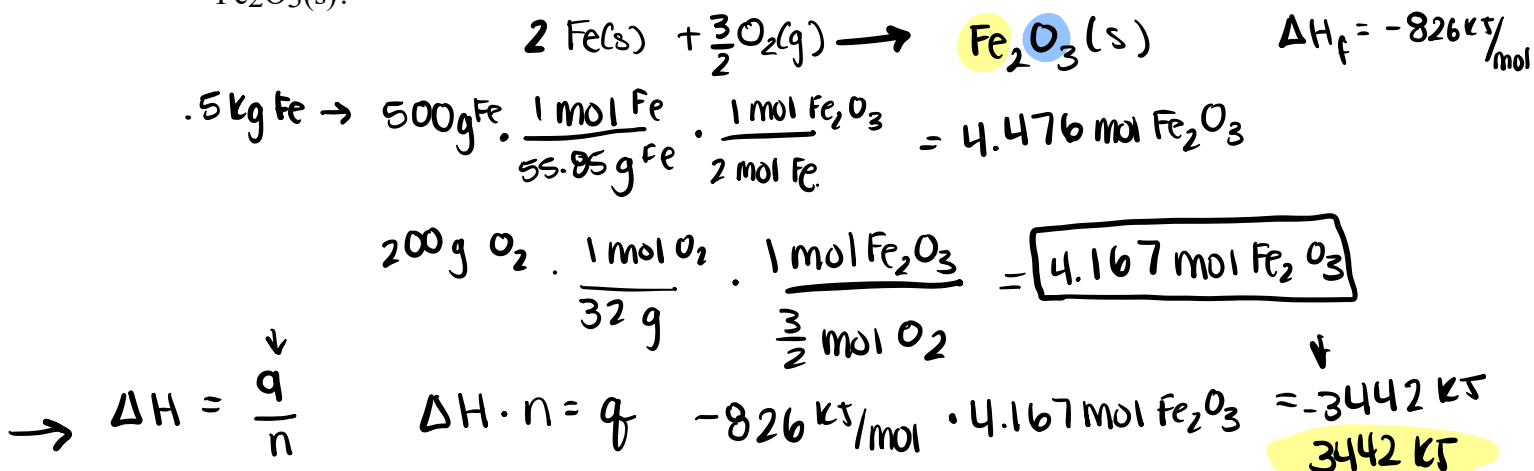 Fe₂O₃(s).
2 Fe(s) + 3/2 O₂(g) → Fe₂O₃(s) ΔHf = -826 KJ/mol
.5 Kg Fe → 500g Fe · 1 mol Fe / 55.85 g Fe · 1 mol Fe₂O₃ / 2 mol Fe = 4.476 mol Fe₂O₃
200g O₂ · 1 mol O₂ / 32 g · 1 mol Fe₂O₃ / 3/2 mol O₂ = 4.167 mol Fe₂O₃
→ ΔH = q/n ΔH · n = q -826 KJ/mol · 4.167 mol Fe₂O₃ = -3442 KJ
3442 KJ